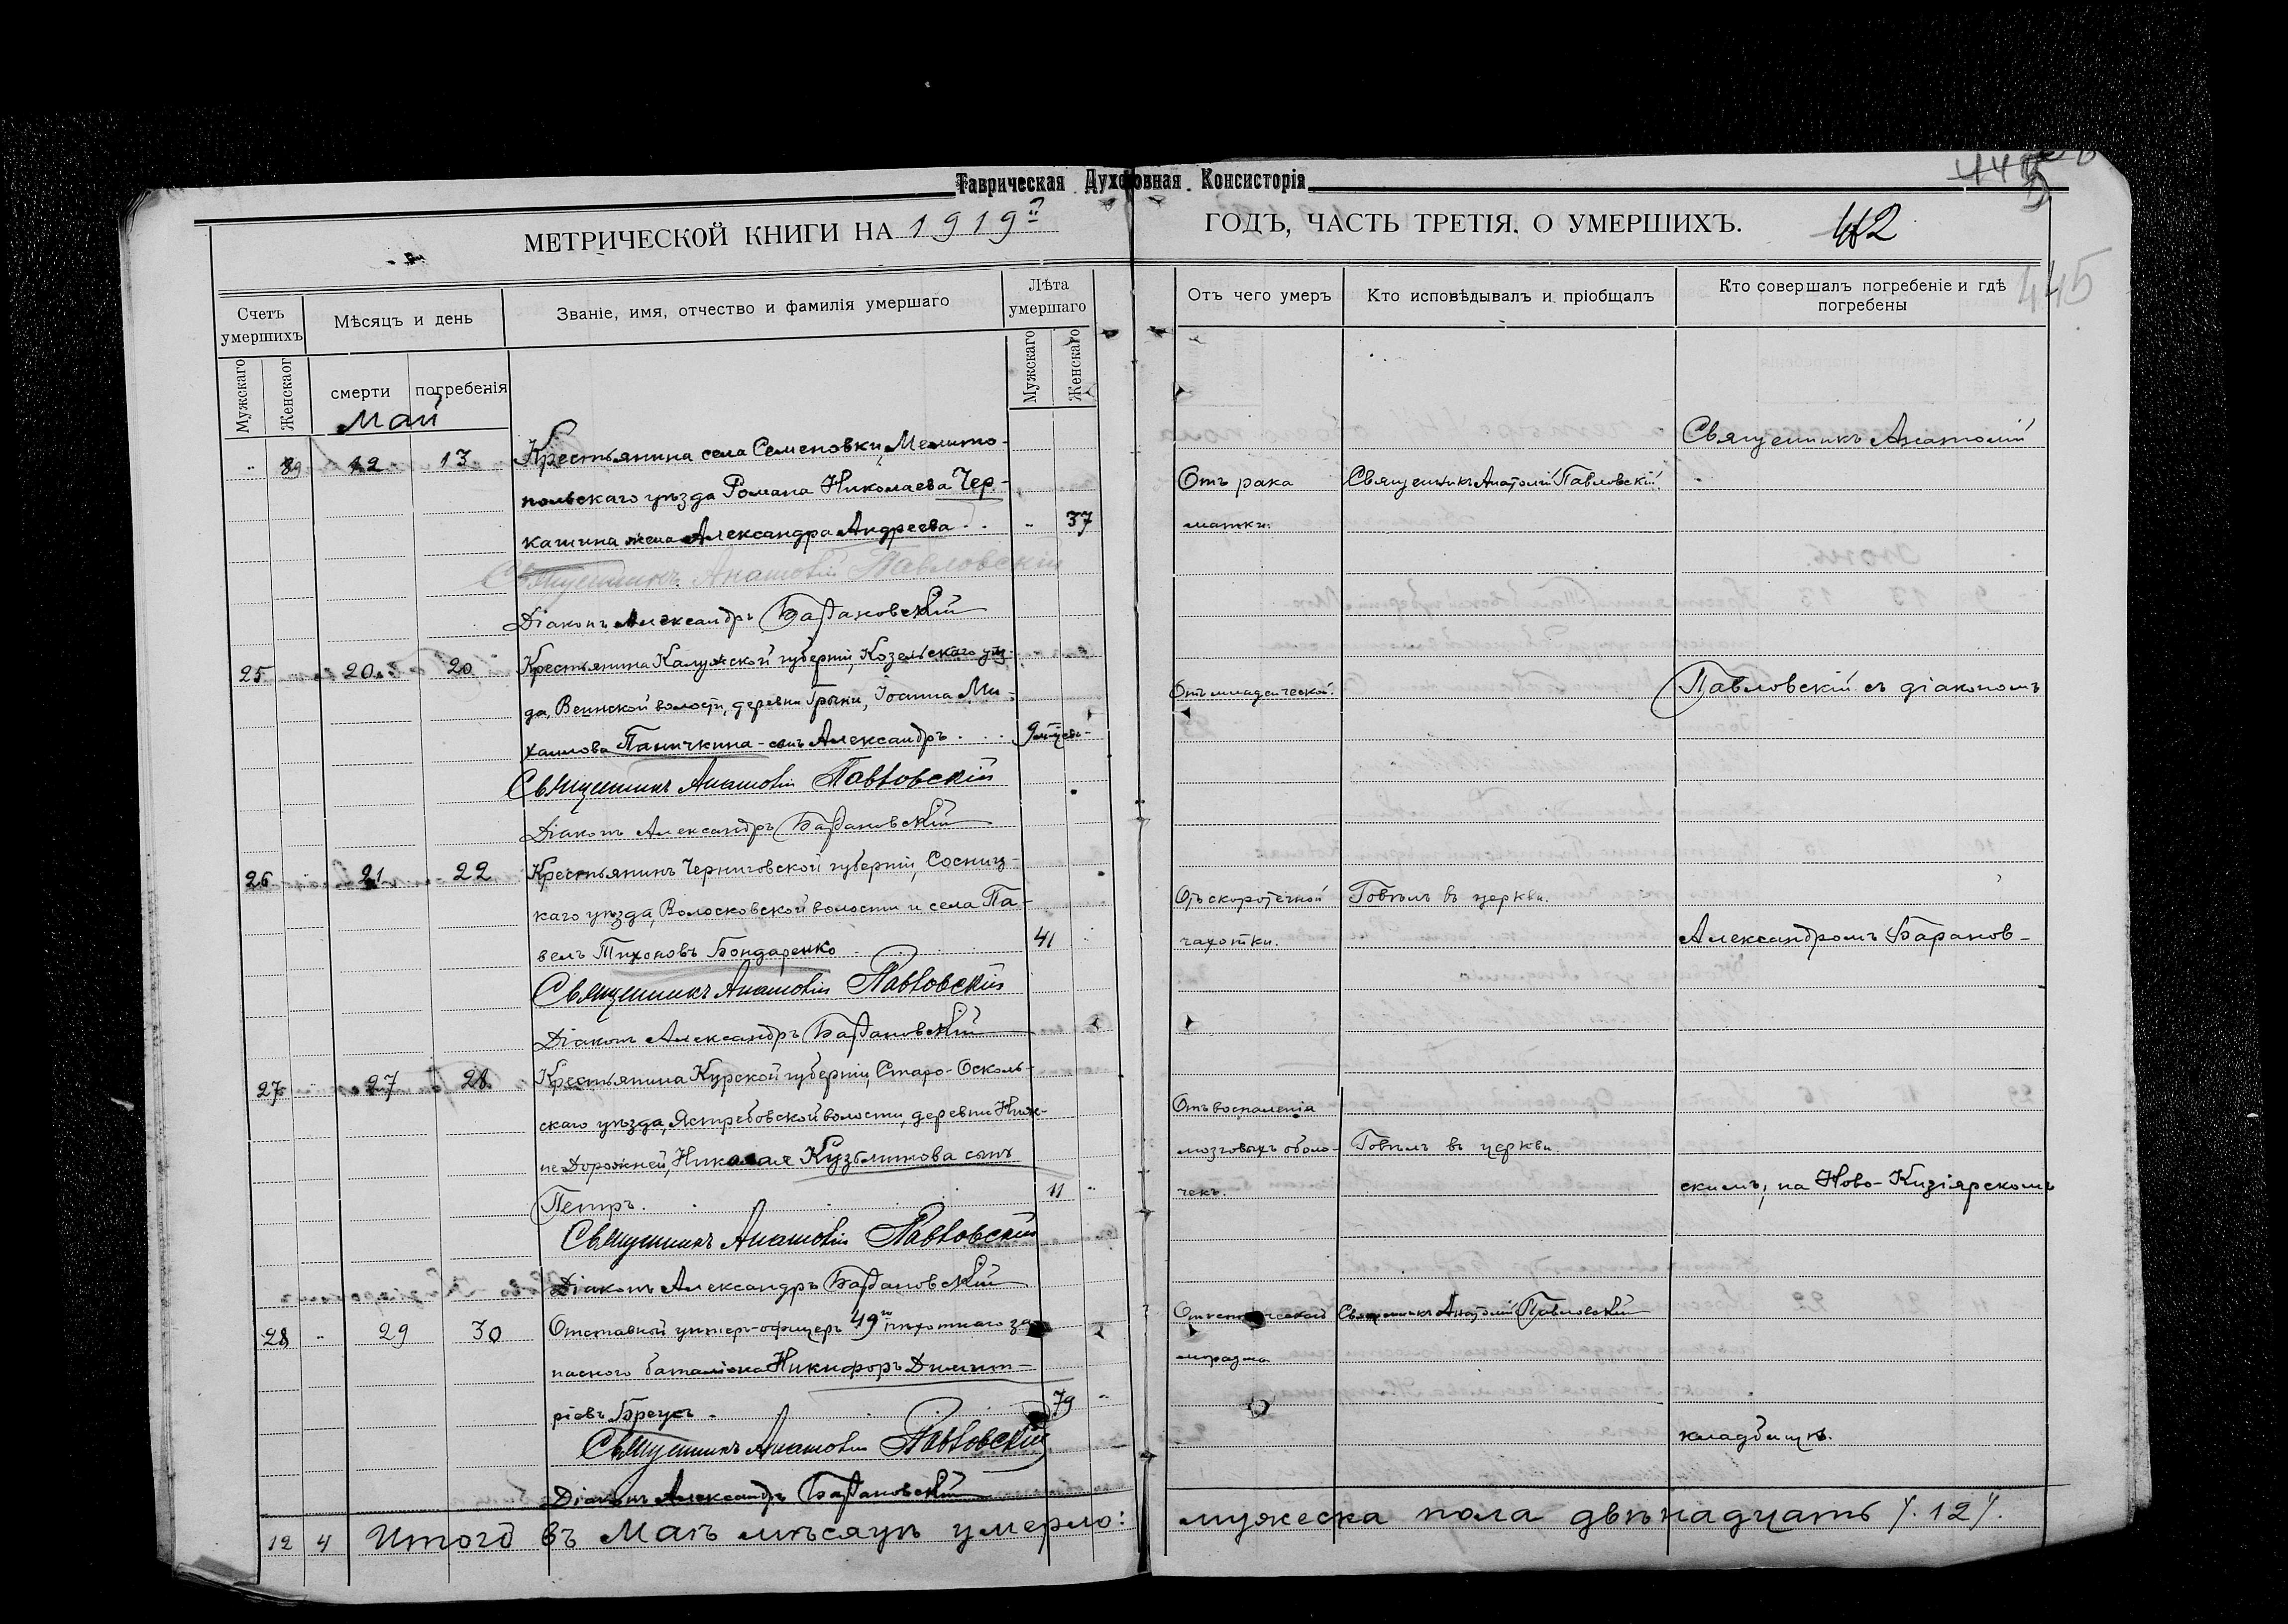 Таврическая Духовная Консисторія
МЕТРИЧЕСКОЙ КНИГИ НА 1919й
Счетъ умершихъ
Мѣсяцъ и день
Званіе, имя, отчество и фамилія умершаго
Лѣта умершаго
Мужскаго
Женскаог
смерти
погребенія
Мужскаго
Женскаго
Май
12 13 Крестьянина села Семеновки, Мелито-
польскаго уѣзда Романа Николаева Чер-
кашина жена Александра Андреева 37
Священникъ Анатолій Павловскій
Діаконъ Александръ Барановскій
25 20 20 Крестьянина Калужской губерніи, Козельскаго уѣз-
да, Веинской волости, деревни Грыни, Іоанна Ми-
хаилова Паничкина - сынъ Александръ
Священникъ Анатолій Павловскій
Діаконъ Александръ Барановскій
26 21 22 Крестьянинъ Черниговской губерніи, Сосниц-
каго уѣзда, Волосковской волости и села Па-
велъ Тихоновъ Бондаренко 41
Священникъ Анатолій Павловскій
Діаконъ Александръ Барановскій
27 27 28 Крестьянина Курской губерніи, Старо-Осколь-
скаго уѣзда, Ястребовской волости, деревни Ниж-
не Дорожней, Николая Кузьминова сынъ
Петръ. 11
Священникъ Анатолій Павловскій
Діаконъ Александръ Барановскій
28 29 30 Отставной унтеръ-офицеръ 49го пѣхотнаго за-
паснаго баталіона Никифоръ Димит-
ріевъ Бреусъ. 79
Священникъ Анатолій Павловскій
Діаконъ Александръ Барановскій
12 4 Итого въ Маѣ мѣсяцѣ умерло:
ГОДЪ, ЧАСТЬ ТРЕТІЯ. О УМЕРШИХЪ.
442
445
Отъ чего умеръ
Кто исповѣдывалъ и пріобщалъ
Кто совершалъ погребеніе и гдѣ погребены
Священникъ Анатолій
Отъ рака Священникъ Анатолій Павловскій
матки.
Отъ младенческой. Павловскій съ діакономъ
Отъ скоротечной Говѣлъ въ церкви.
чахотки. Александромъ Баранов-
Отъ воспаленія
мозговыхъ оболо- Говѣлъ въ церкви
чекъ. скимъ, на Ново-Кизіярскомъ
Священникъ Анатолій Павловскій
маразма
кладбищѣ.
мужеска пола двѣнадцать /. 12 /.